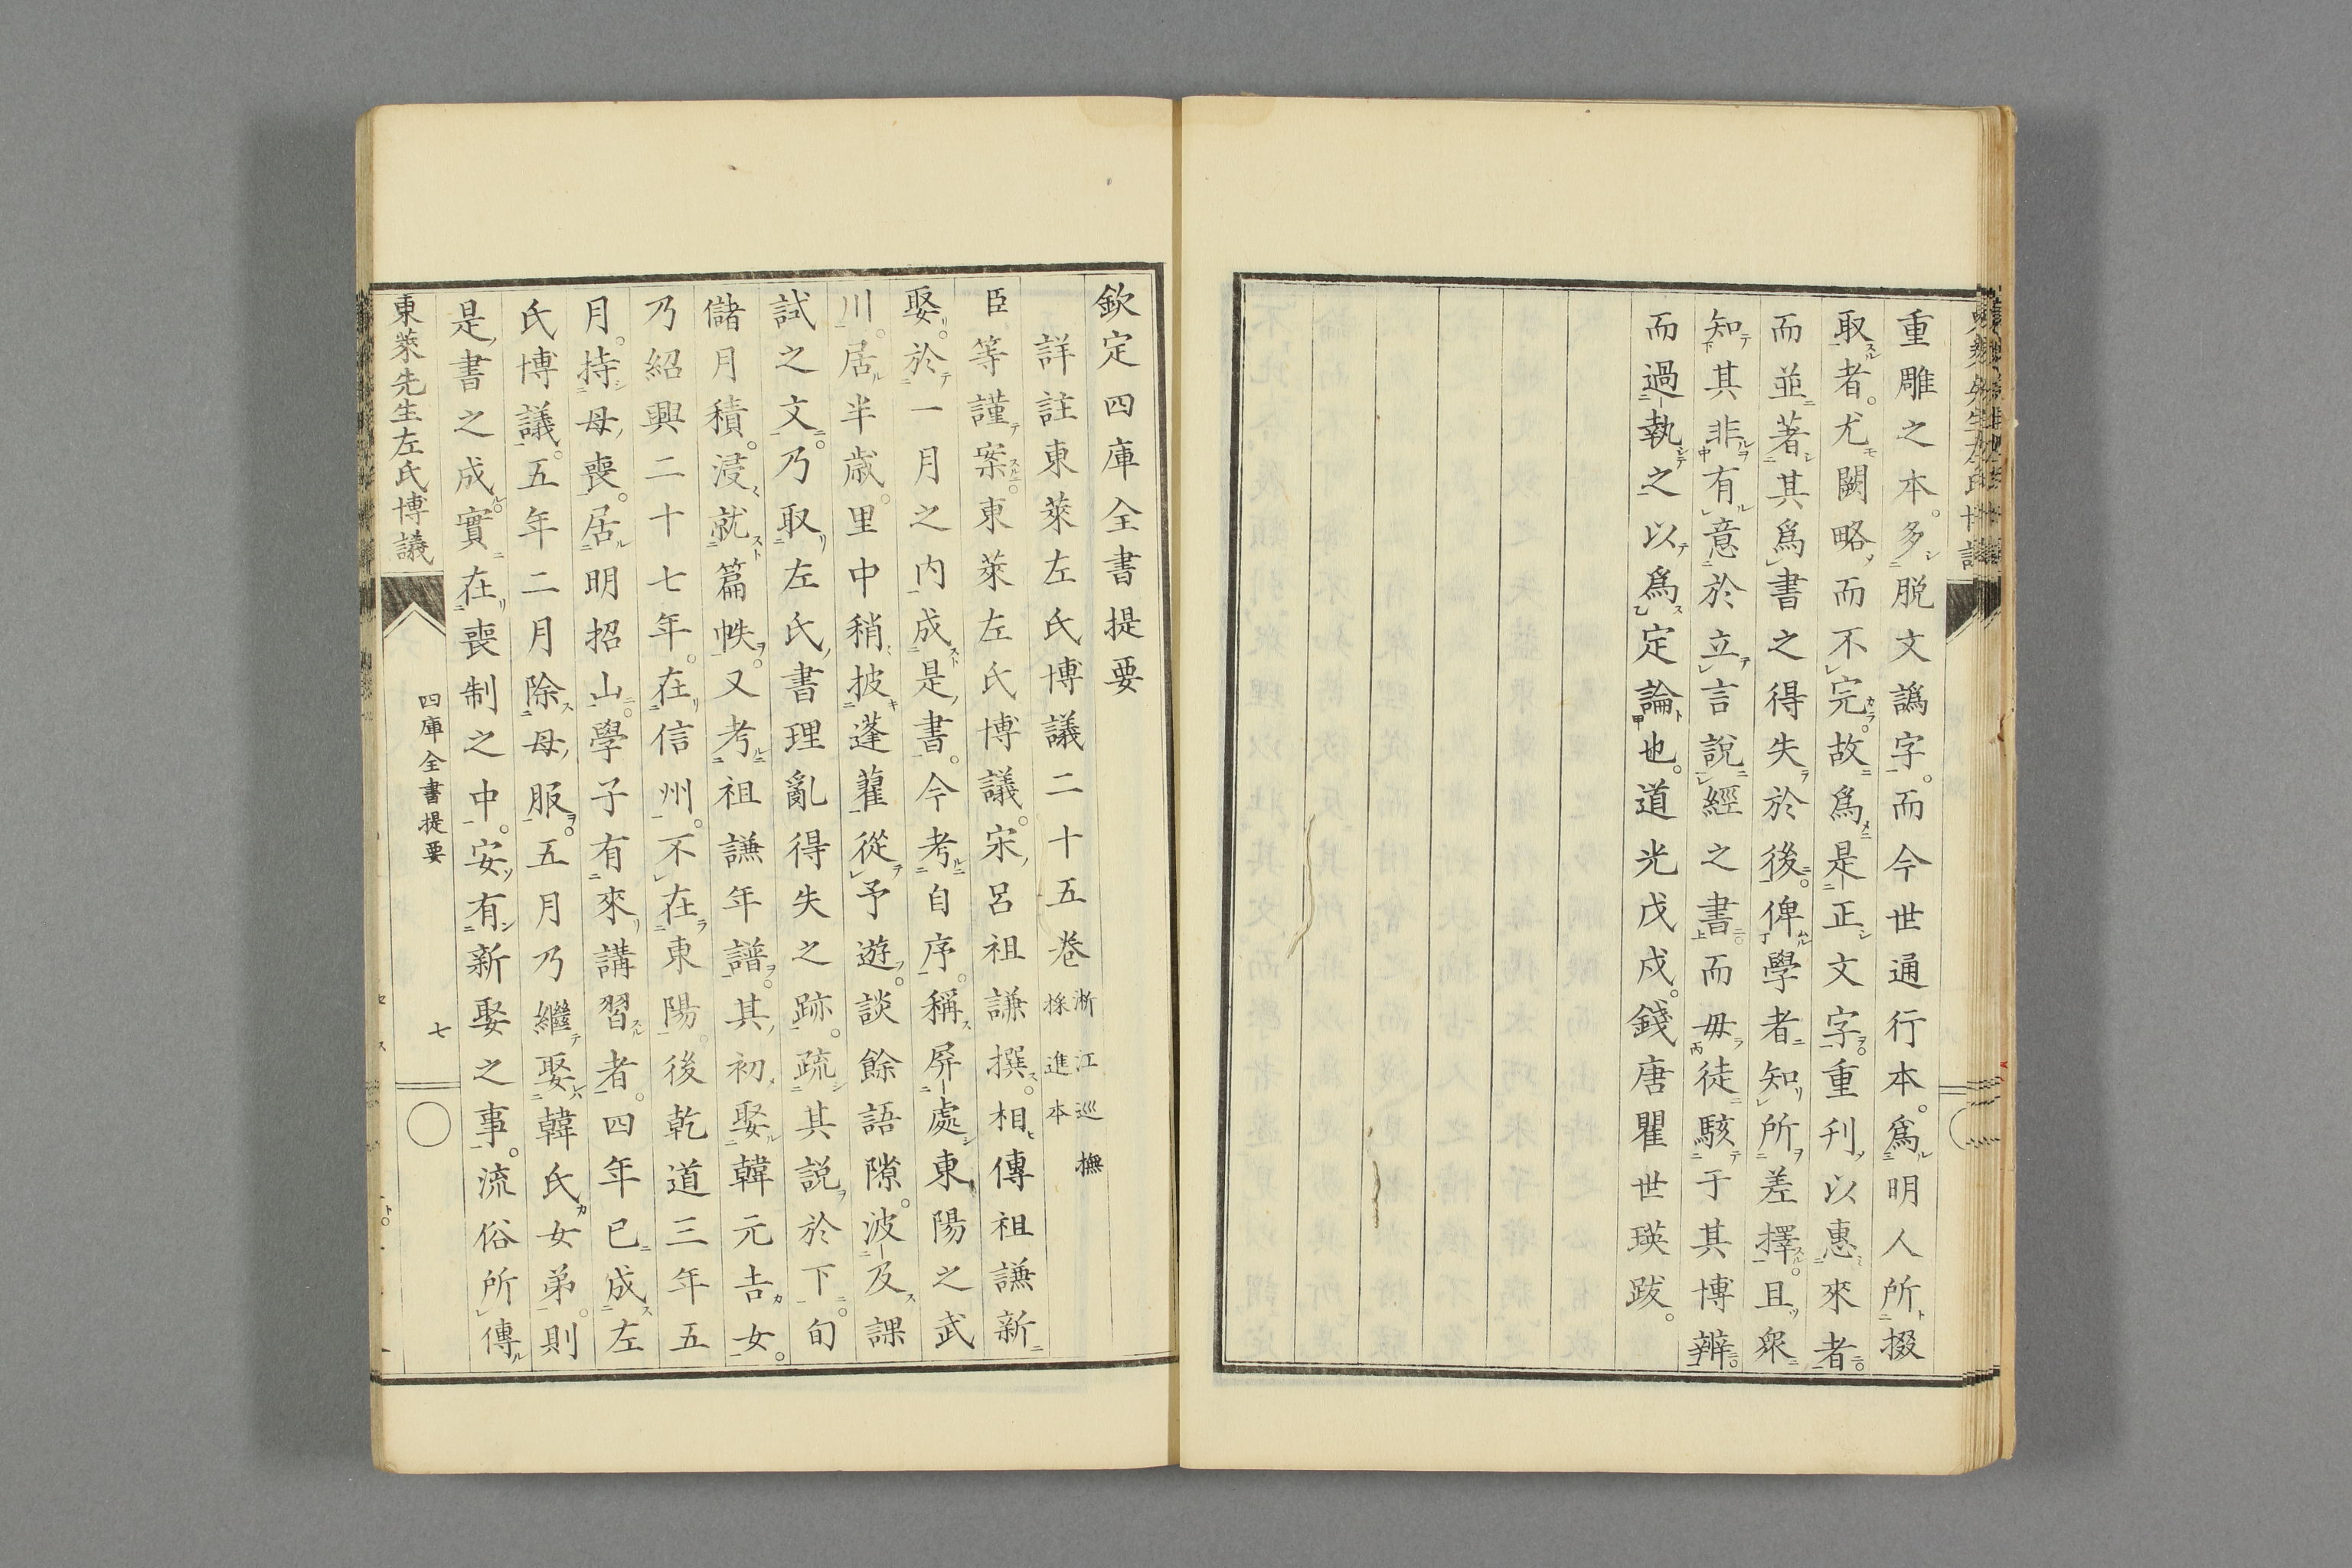 重雕之本。多脱文譌字。而今世通行本。爲明人所掇
取者。尤闕略而不完。故爲是正文字。重刊以惠來者。
而並著其爲書之得失於後。俾學者知所差擇。且衆
知其非有意於立言說經之書。而毋徒駭于其博辧
而過執之以爲定論也。道光戊戌。錢唐瞿世瑛跋。
欽定四庫全書提要
詳註東萊左氏博議二十五卷 浙江巡撫
採進本
臣等謹案。東萊左氏博議。宋呂祖謙撰。相傳祖謙新
娶。於一月之内成是書。今考自序。稱屏處東陽之武
川。居半歲。里中稍披蓬藋從予遊。談餘語隙。波及課
試之文。乃取左氏書理亂得失之跡。疏其説於下。旬
儲月積。浸就篇帙。又考祖謙年譜。其初娶韓元吉女。
乃紹興二十七年。在信州。不在東陽。後乾道三年五
月。持母喪。居明招山。學子有來講習者。四年已成左
氏博議。五年二月除母服。五月乃繼娶韓氏女弟。則
是書之成。實在喪制之中。安有新娶之事。流俗所傳
東萊先生左氏博議
四庫全書提要
七